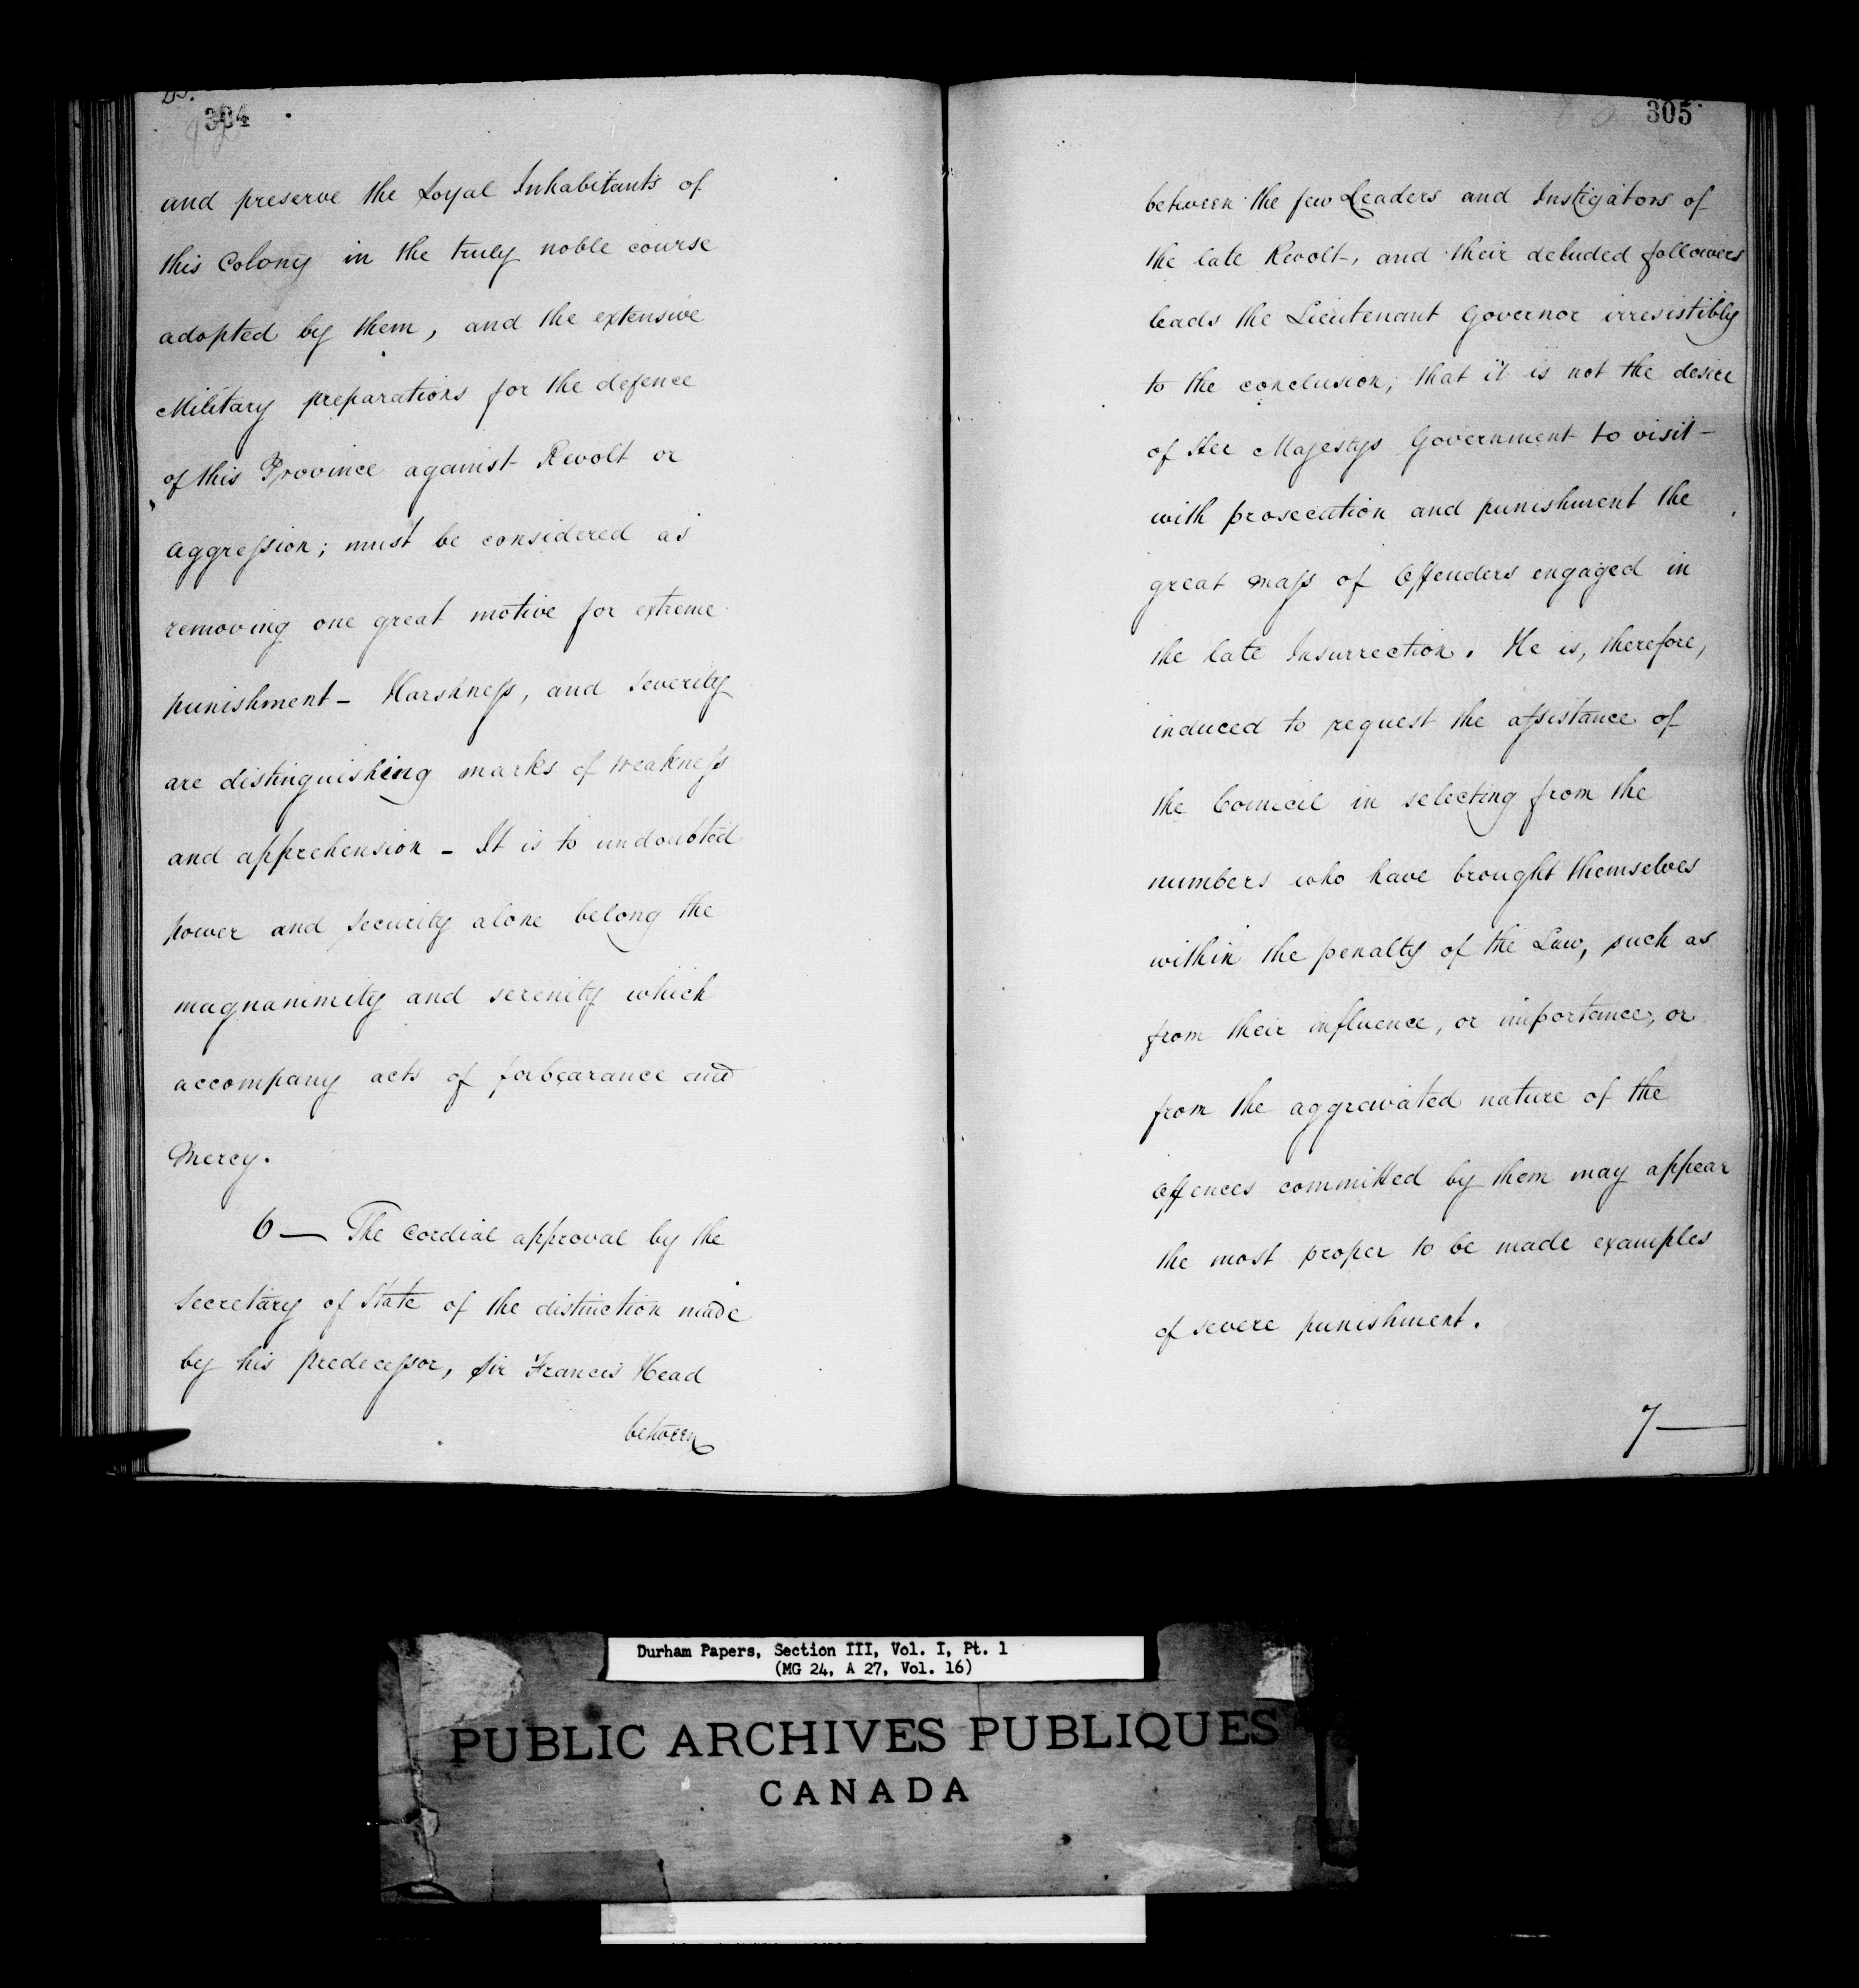 304
and preserve the Loyal Inhabitants of
this Colony in the truly noble course
adopted by them, and the extensive
Military preparations for the defence
of this Province against Revolt or
aggression; must be considered as
removing one great motive for extreme
punishment - Harshness, and severity
are distinguishing marks of weakness
and apprehension - It is to undoubted
power and security alone belong the
magnanimity and serenity which
accompany acts of forbearance and
Mercy.
6 — The Cordial approval by the
Secretary of State of the distinction made
by his predecessor, Sir Francis Head
between
305
between the few Leaders and Instigators of
the late Revolt, and their deluded followers
leads the Lieutenant Governor irresistibly
to the conclusion; that it is not the desire
of Her Majestys Government to visit
with prosecution and punishment the
great mass of Offenders engaged in
the late Insurrection. He is, therefore,
induced to request the assistance of
the Council in selecting from the
numbers who have brought themselves
within the penalty of the Law, such as
from their influence, or importance, or
from the aggravated nature of the
Offences committed by them may appear
the most proper to be made examples
of severe punishment.
7 —
Durham Papers, Section III, Vol. I, Pt. 1
(MG 24, A 27, Vol. 16)
PUBLIC ARCHIVES PUBLIQUES
CANADA